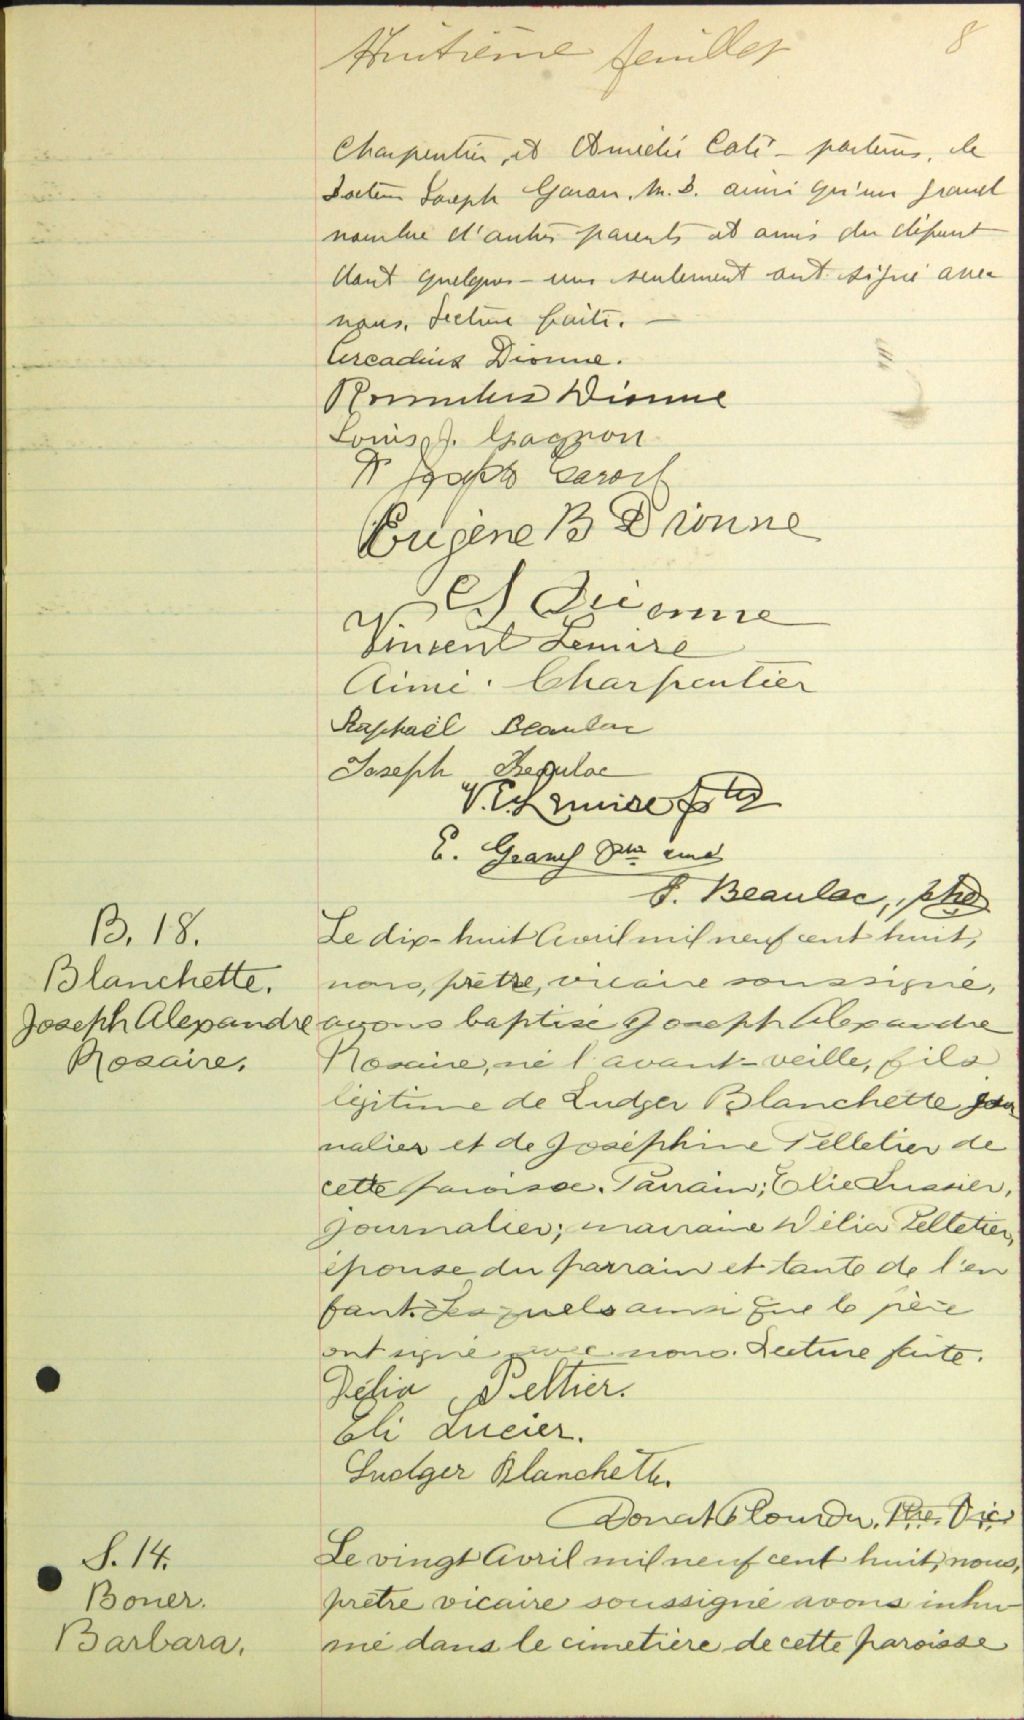 Huitième feuillet 8
Charpentier, et Amédée Coté - porteurs, le
Docteur Joseph Garon, M. D. ainsi qu'un grand
nombre d'autres parents et amis du défunt
dont quelques-uns seulement ont signé avec
nous. Lecture faite. —
Arcadius Dionne.
Romulus Dionne
Louis J. Gagnon
Dr Joseph Garon
Eugène B Dionne
Dionne
Vincent Lemire
Aimé Charpentier
Raphaël Beaulac
Joseph Beaulac
V. E. Lemire ptre
E. Grand ptre curé
F. Beaulac, ptre
B. 18.
Blanchette.
Joseph Alexandre
Rosaire.
Le dix-huit Avril mil neuf cent huit,
nous, prêtre, vicaire soussigné,
avons baptisé Joseph Alexandre
Rosaire, né l'avant-veille, fils
légitime de Ludger Blanchette jour
nalier et de Joséphine Pelletier de
cette paroisse. Parrain; Elie Lussier,
journalier; marraine Délia Pelletier,
épouse du parrain et tante de l'en
fant. Lesquels ainsi que le père
ont signé avec nous. Lecture faite.
Délia Peltier.
Eli Lucier.
Ludger Blanchette.
Donat Plourde, Ptre. Vic.
S. 14.
Boner.
Barbara.
Le vingt Avril mil neuf cent huit, nous,
prêtre vicaire soussigné avons inhu-
mé dans le cimetière de cette paroisse